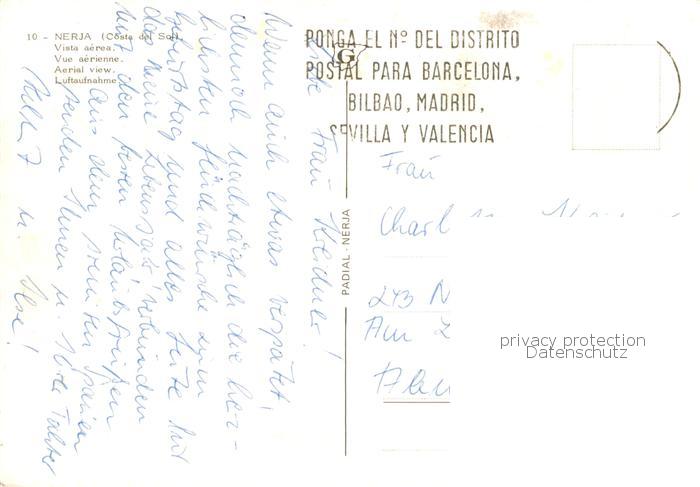 10 - NERJA (Costa del Sol).
Vista aérea.
Vue aérienne.
Aerial view.
Luftaufnahme.
PONGA EL Nº DEL DISTRITO
POSTAL PARA BARCELONA,
BILBAO, MADRID,
SEVILLA Y VALENCIA
G
PADIAL - NERJA
Liebe Frau
Wenn auch etwas verspätet,
dennoch nachträglich die herz-
lichsten Glückwünsche zum
Geburtstag und alles Gute für
das neue Lebensjahr verbunden
mit den besten Urlaubsgrüßen
aus dem sonnigen Spanien
senden Ihnen u. Ihrer Tochter
u. Ilse!
Frau
Charl
243 N
Am
privacy protection
Datenschutz